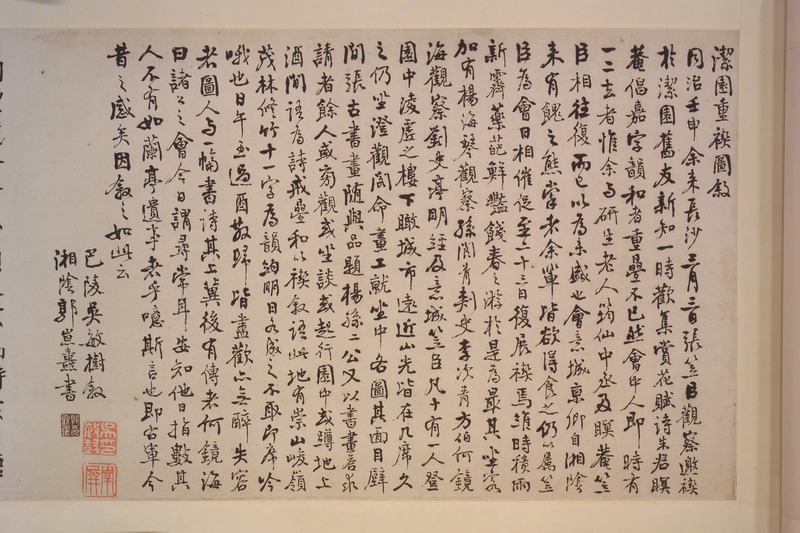 潔園重禊圖敘
同治壬申余来長沙三月三日張笠臣觀察邀禊
於潔園舊友新知一時歡集賞花賦詩朱君暝
菴倡嘉字韻和者重疊不已然會中人即時有
一二去者惟余与研生老人筠仙中丞及暝菴笠
臣相往復而已以為未盛也會意城京卿自湘陰
来有餽之熊掌者余輩皆欲得食之仍以属笠
臣為會日相催促至二十三日復展禊焉維時積雨
新霽藥葩鮮豔餞春之游於是為最其坐客
加有楊海琴觀察孫閬青刺史李次青方伯何鏡
海觀察劉史亭明經及意城笠臣凡十有一人登
園中淩虛之樓下瞰城市遠近山光皆在几席久
之仍坐澄觀閣命畫工就坐中各圖其面目壁
間張古書畫随與品題楊孫二公又以書畫應求
請者餘人或旁觀或坐談或起行園中或蹲地上
酒間語为詩戒疊和以禊敘語此地有崇山峻嶺
茂林修竹十一字為韻約明日各成之不取即席吟
哦也日午至過酉散歸皆盡歡亦無醉失容
者圖人与一幅書诗其上冀後有傳者何鏡海
曰諸公之會今日謂尋常耳安知他日指數其
人不有如蘭亭遺事者乎噫斯言也即古輩今
昔之感矣因敘之如此云
巴陵吳敏樹敘
湘陰郭崑燾書